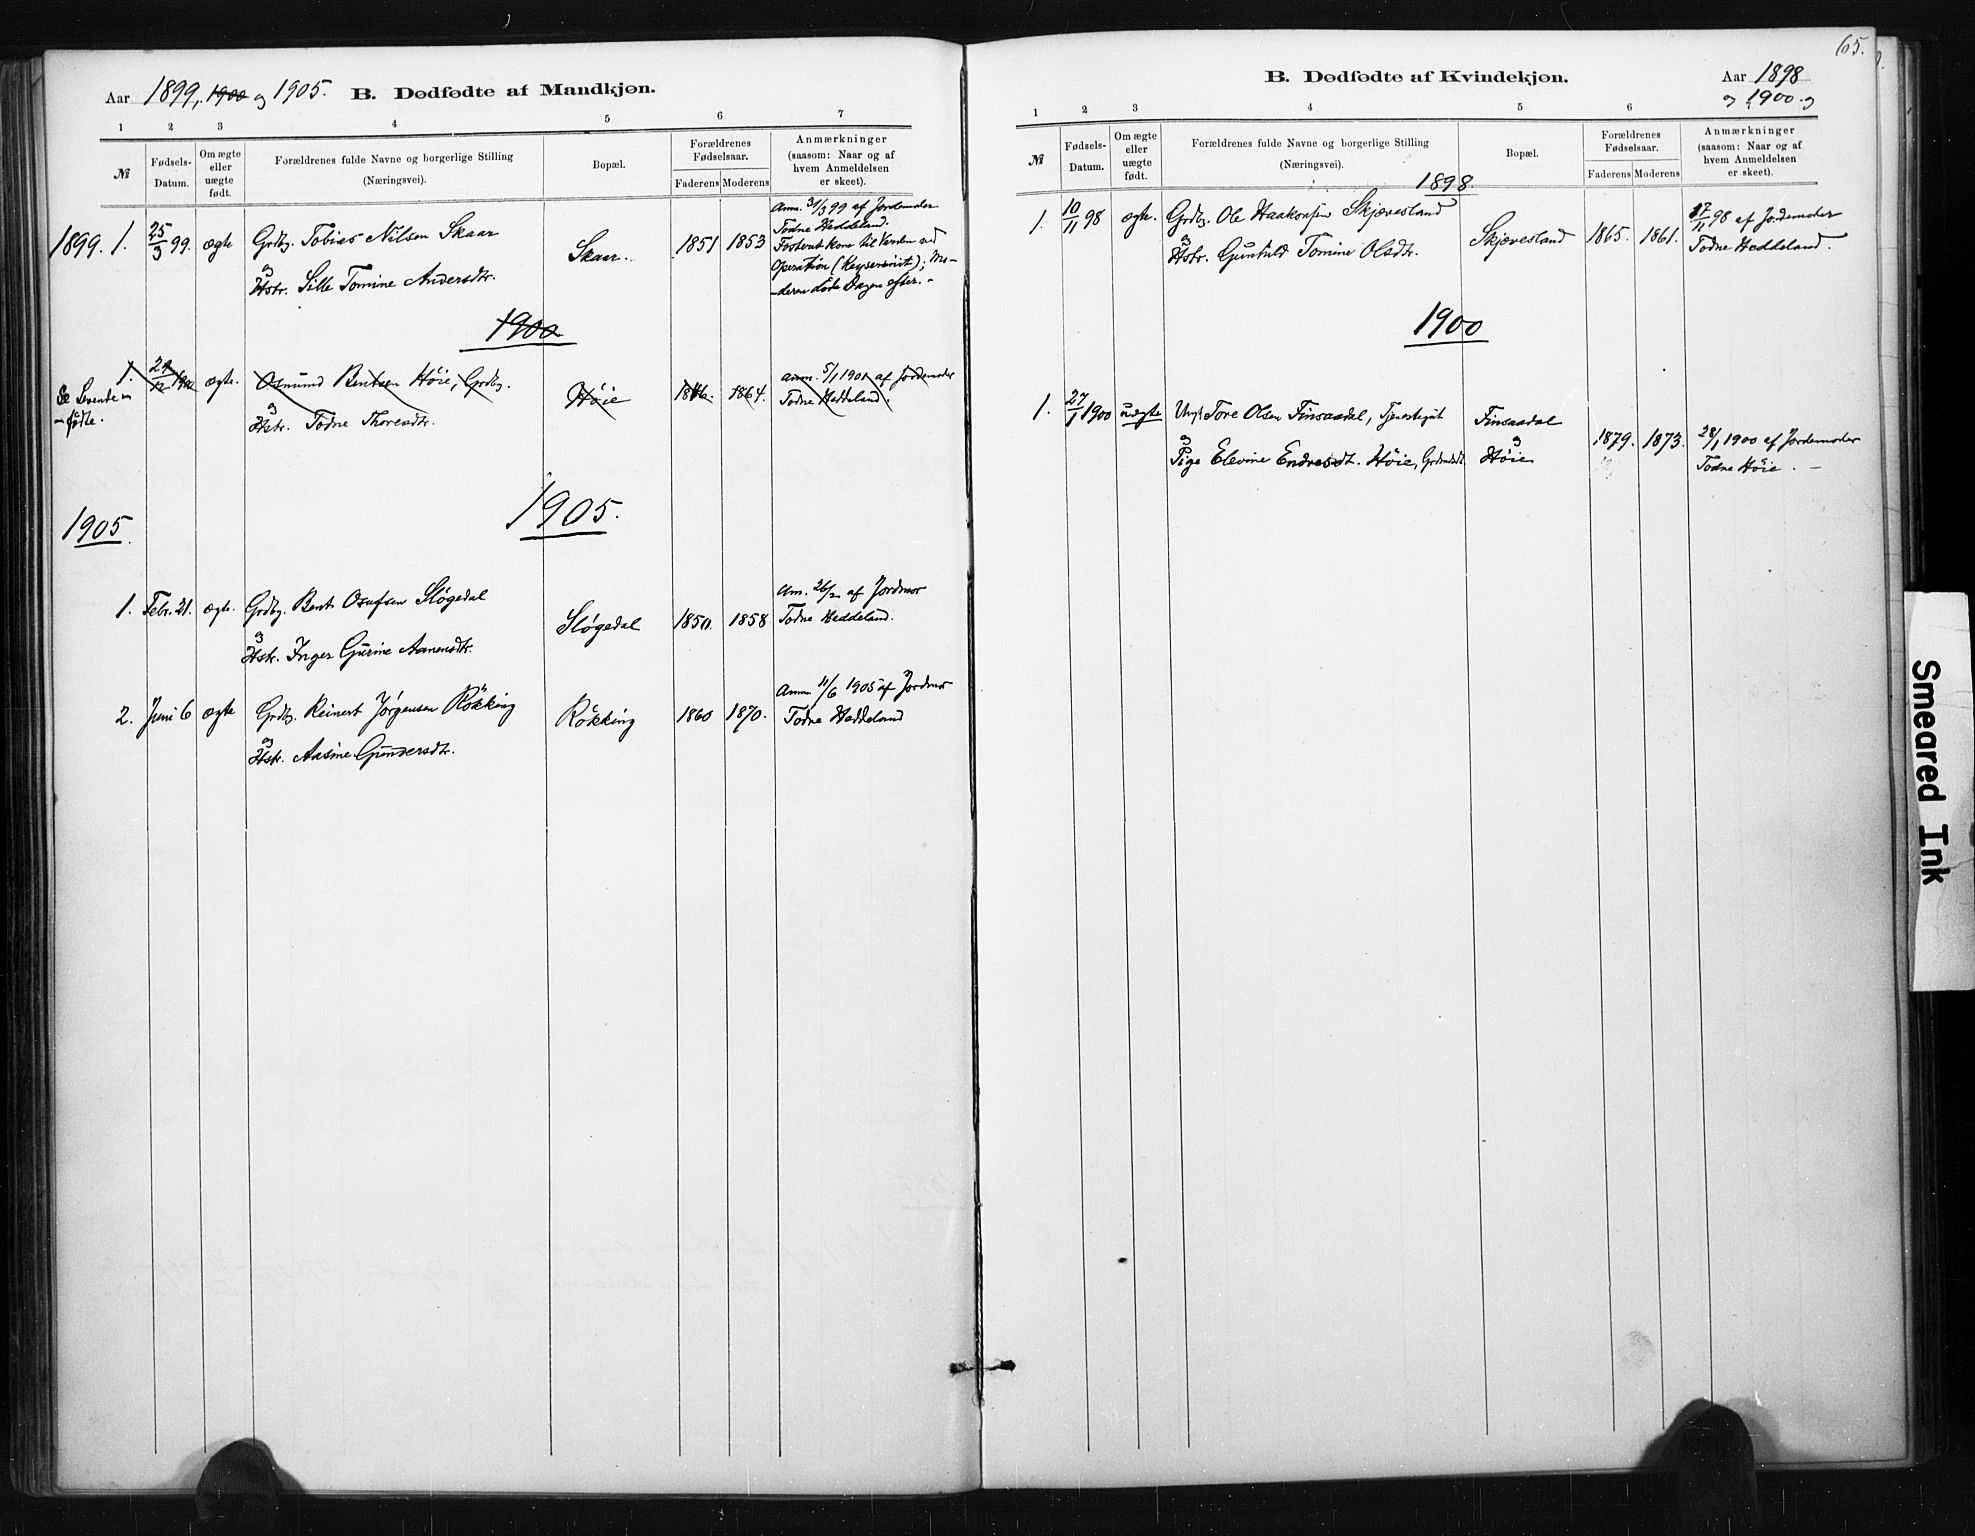 Aar 1899, 1900 og 1905. B. Dødfødte af Mandkjøn.
1 2 3 4 5 6 7
№ Fødsels-Datum. Om ægte eller uægte født. Forældrenes fulde Navne og borgerlige Stilling (Næringsvei). Bopæl. Forældrenes Fødselsaar. Faderens Moderens Anmærkninger (saasom: Naar og af hvem Anmeldelsen er skeet).
1899. 1. 25/3 99. ægte Grdbr. Tobias Nilsen Skaar
og
Hstr. Sille Tomine Andersdtr.
Skaar. 1851 1853
Anm. 31/3 99 af Jordemoder
Todne Heddeland.
Fosteret kom til Verden ved
Operation (Keysersnit); Mo-
-deren døde Dagen efter. -
1900
Se Levende
-fødte.
1. ægte. Osmund Bentsen Høie, Grdbr.
og
Hstr. Todne Thoresdtr.
Høie 1864.
Anm. 5/1 1901 af Jordemoder
Todne Heddeland.
1905
1905.
1. Febr. 21. ægte. Grdbr. Bent Osufsen Sløgedal
og
Hstr. Inger Gurine Aanensdtr.
Sløgedal 1850. 1858
Anm. 26/2 af Jordmor
Todne Heddeland.
2. Juni 6 ægte Grdbr. Reinert Jørgensen Røkking
og
Hstr. Aasine Gundersdtr.
Røkking 1860 1870.
Anm. 11/6 1905 af Jordmor
Todne Heddeland
65.
B. Dødfødte af Kvindekjøn. Aar 1898
og 1900 og
1 2 3 4 5 6 7
№ Fødsels-Datum. Om ægte eller uægte født. Forældrenes fulde Navne og borgerlige Stilling (Næringsvei). Bopæl. Forældrenes Fødselsaar. Faderens Moderens Anmærkninger (saasom: Naar og af hvem Anmeldelsen er skeet).
1898.
1. 10/11 98 ægte. Grdbr. Ole Haakonsen Skjævesland
og
Hstr. Gunhild Tomine Olsdtr.
Skjævesland 1865. 1861.
17/11 98 af Jordemoder
Todne Heddeland.
1900
1. 27/1 1900 uægte Ungk. Tore Olsen Finsaadal, Tjenestegut
og
Pige Elevine Endresdt. Høie,
Finsaadal
og
Høie
1879. 1873.
28/1 1900 af Jordemoder
Todne Høie. -
Smeared Ink